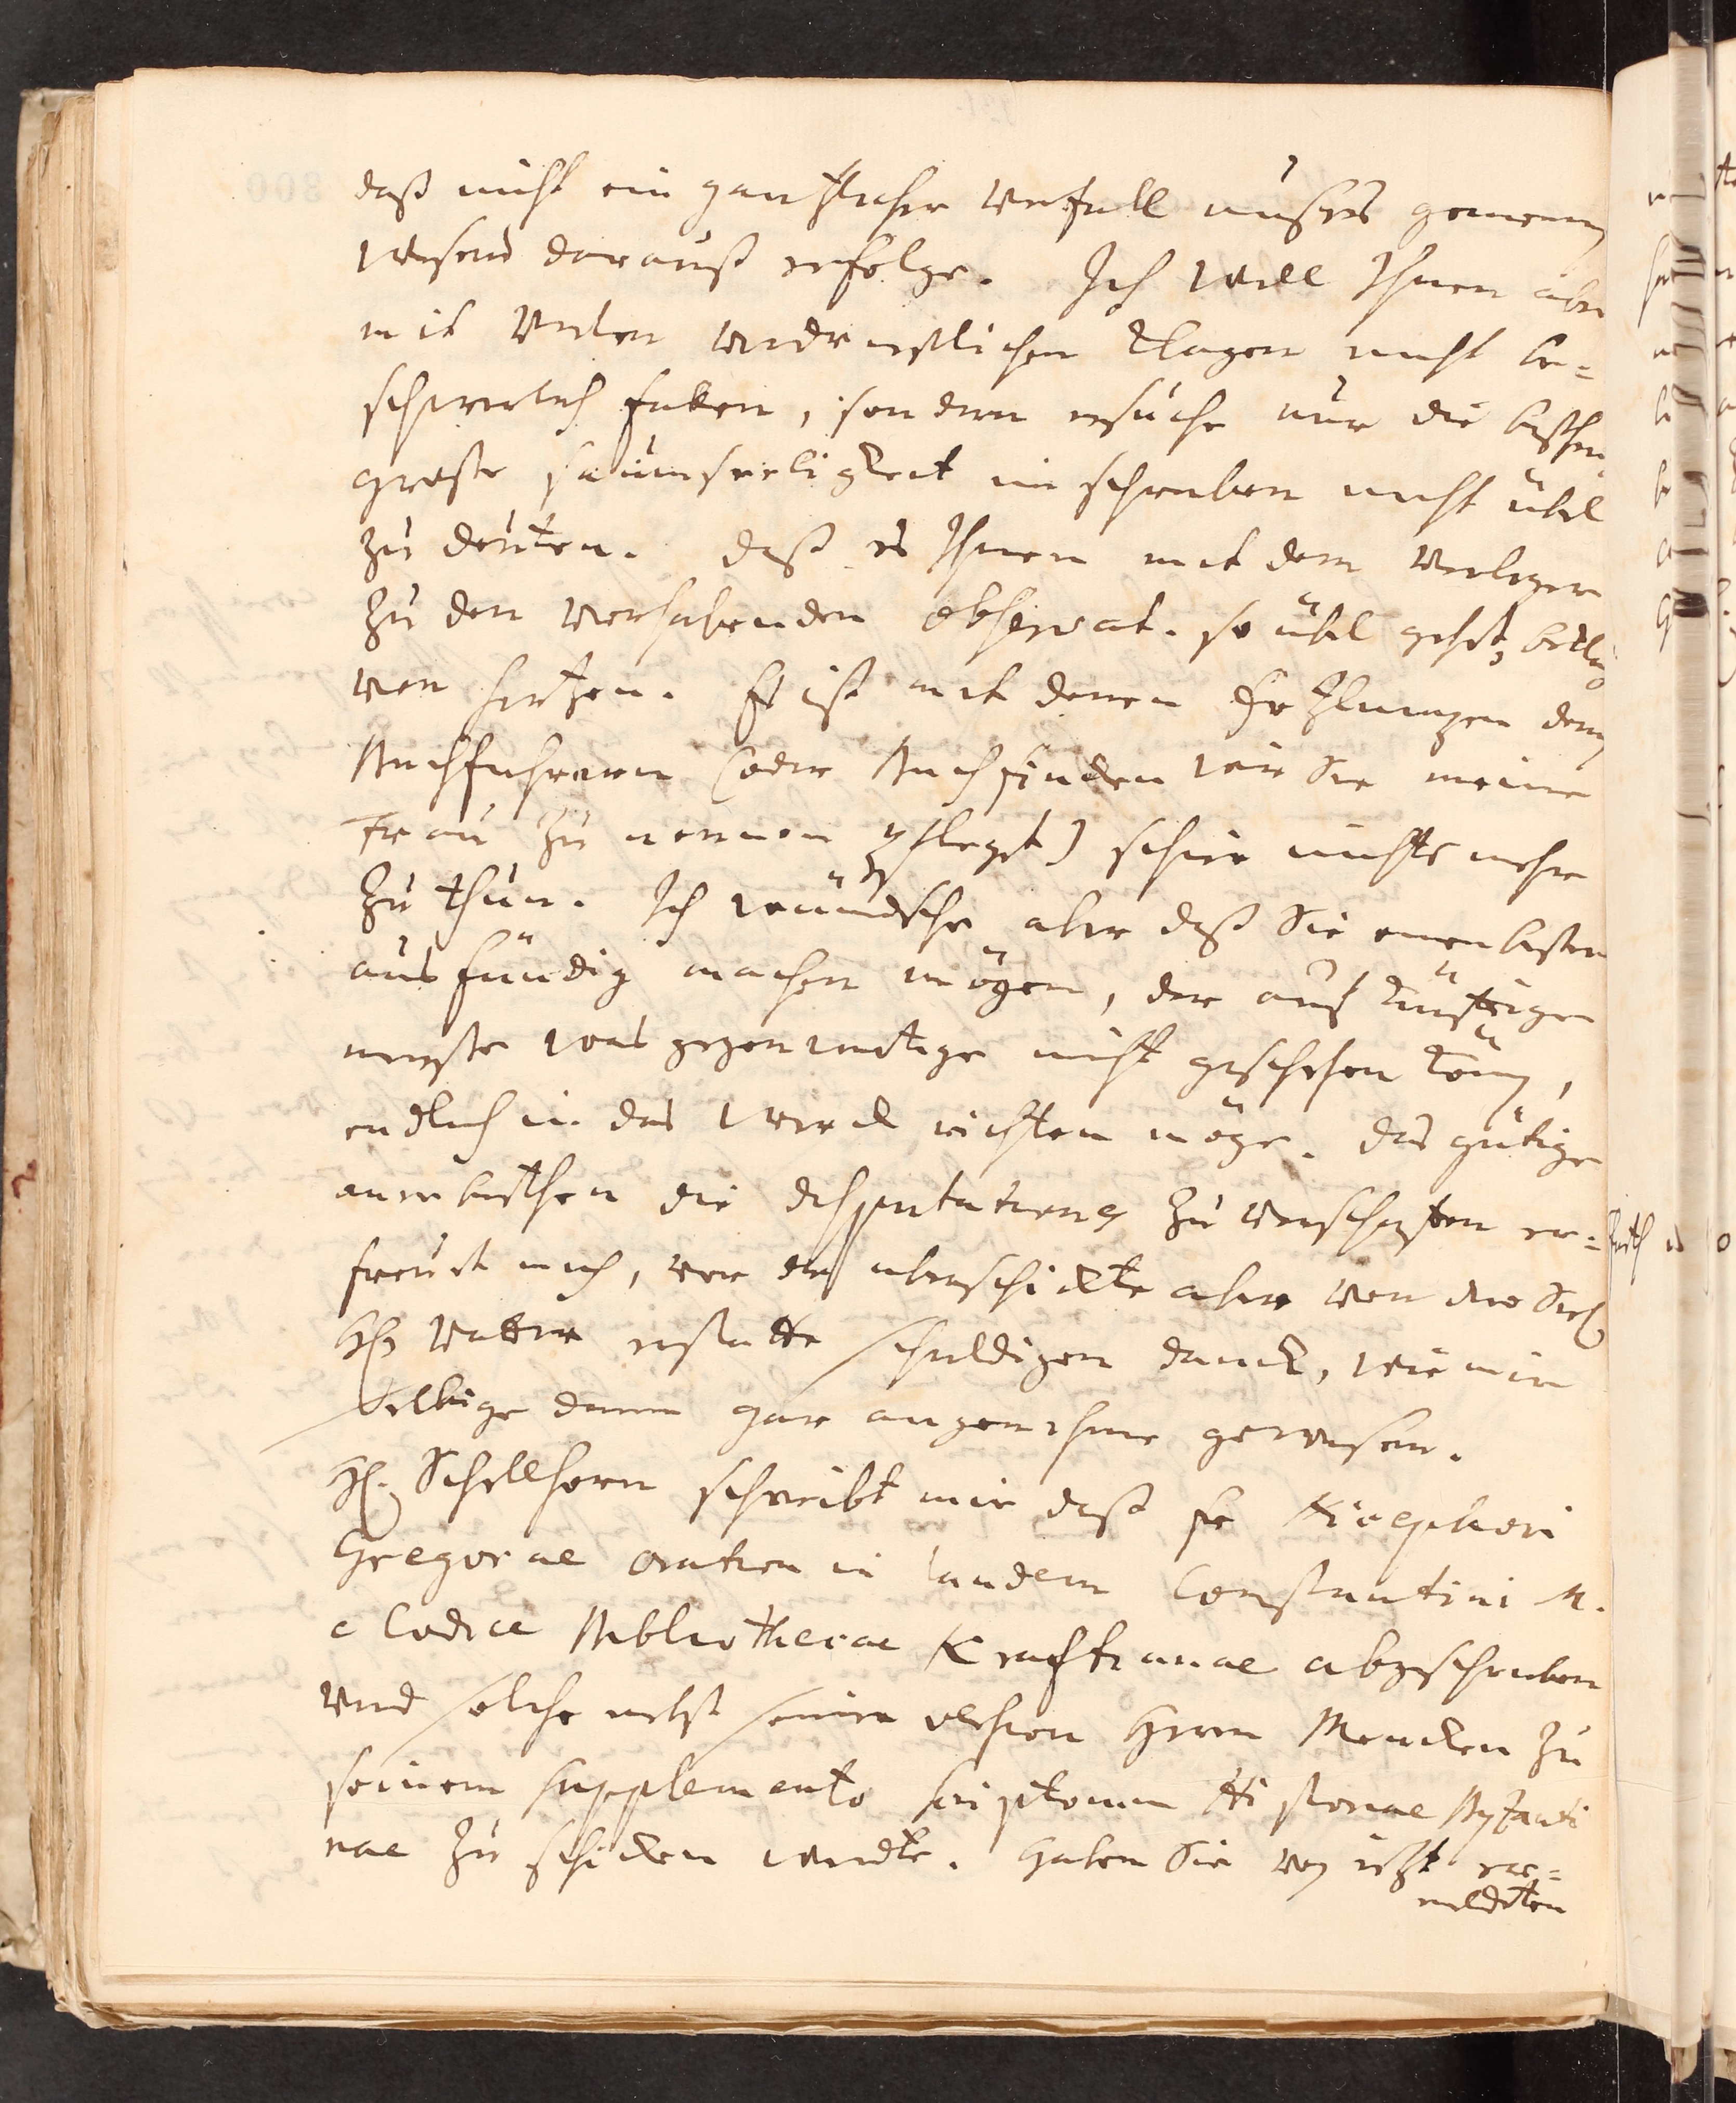 daß nicht ein gantzlicher verfall unsers gemeinen
wesens darauß erfolge. Ich will Ihnen aber
mit vielen verdrießlichen klagen nicht be=
schwerlich fallen, sondern ersuche nur die bißher
große saumseeligkeit im schreiben nicht übel
zu deuten. daß es Ihnen mit dem verlegen
zu den vorhabenden observat. so übel gehet,
von hertzen. Es ist mit denen den
Buchführern (oder Buchsünder wie Sie meine
Frau zu nennen pfleget) schier nichts mehr
zu thun. Ich wündsche aber daß Sie einen besten
ausfündig machen mögen, der auf künftige
meße was gegenwertige nicht geschehen könn,
endlich in das werck richten möge. das gütige
anerbiethen die disputationes zu verschaffen er=
freut mich, vor die uberschickte aber von dero Seel.
H. Vatter erstatte schuldigen danck, wie mir
selbige dann gar angenehme gewesen.
H. Schellhorn schreibt mir daß Er Nicephori
Gregorae oration in laudem Constantini M.
e Codice Bibliothecae Krafftianae abgeschrieben
und solche nebst seiner version Herrn Mencken zu
seinem supplemento scriptorum Historiae Byzanti
nae zu schicken werdte. Haben Sie von izt er=
meldeten